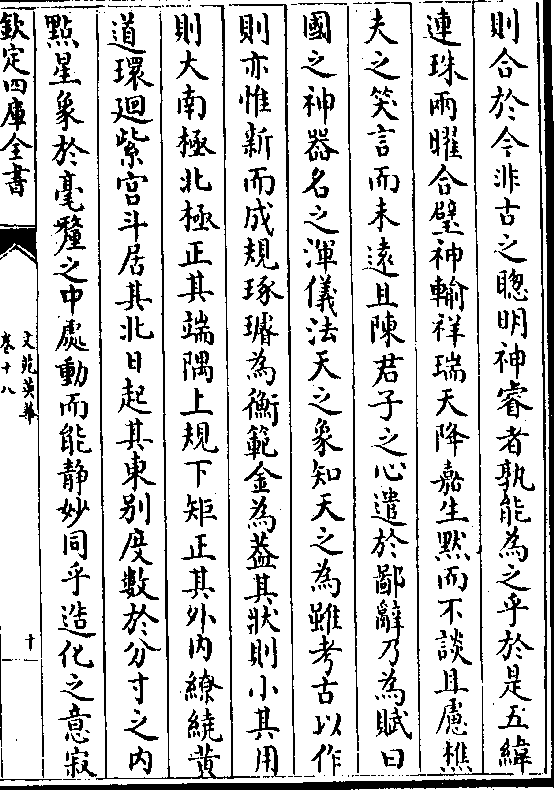 則合於今非古之聰明神睿者孰能為之乎於是五緯
連珠兩曜合璧神輸祥瑞天降嘉生黙而不談且慮樵
夫之笑言而未遠且陳君子之心遣於鄙辭乃為賦曰
國之神器名之渾儀法天之象知天之為雖考古以作
則亦惟新而成規琢璿為衡範金為葢其狀則小其用
則大南極北極正其端隅上規下矩正其外内繚繞黄
道環廻紫宫斗居其北日起其東别度數於分寸之内
㸃星象於毫釐之中處動而能静妙同乎造化之意寂
欽定四庫全書
文苑英華
卷十八
十